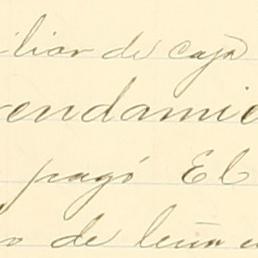 iliar de caja
rendamie
pagó El
o de leña